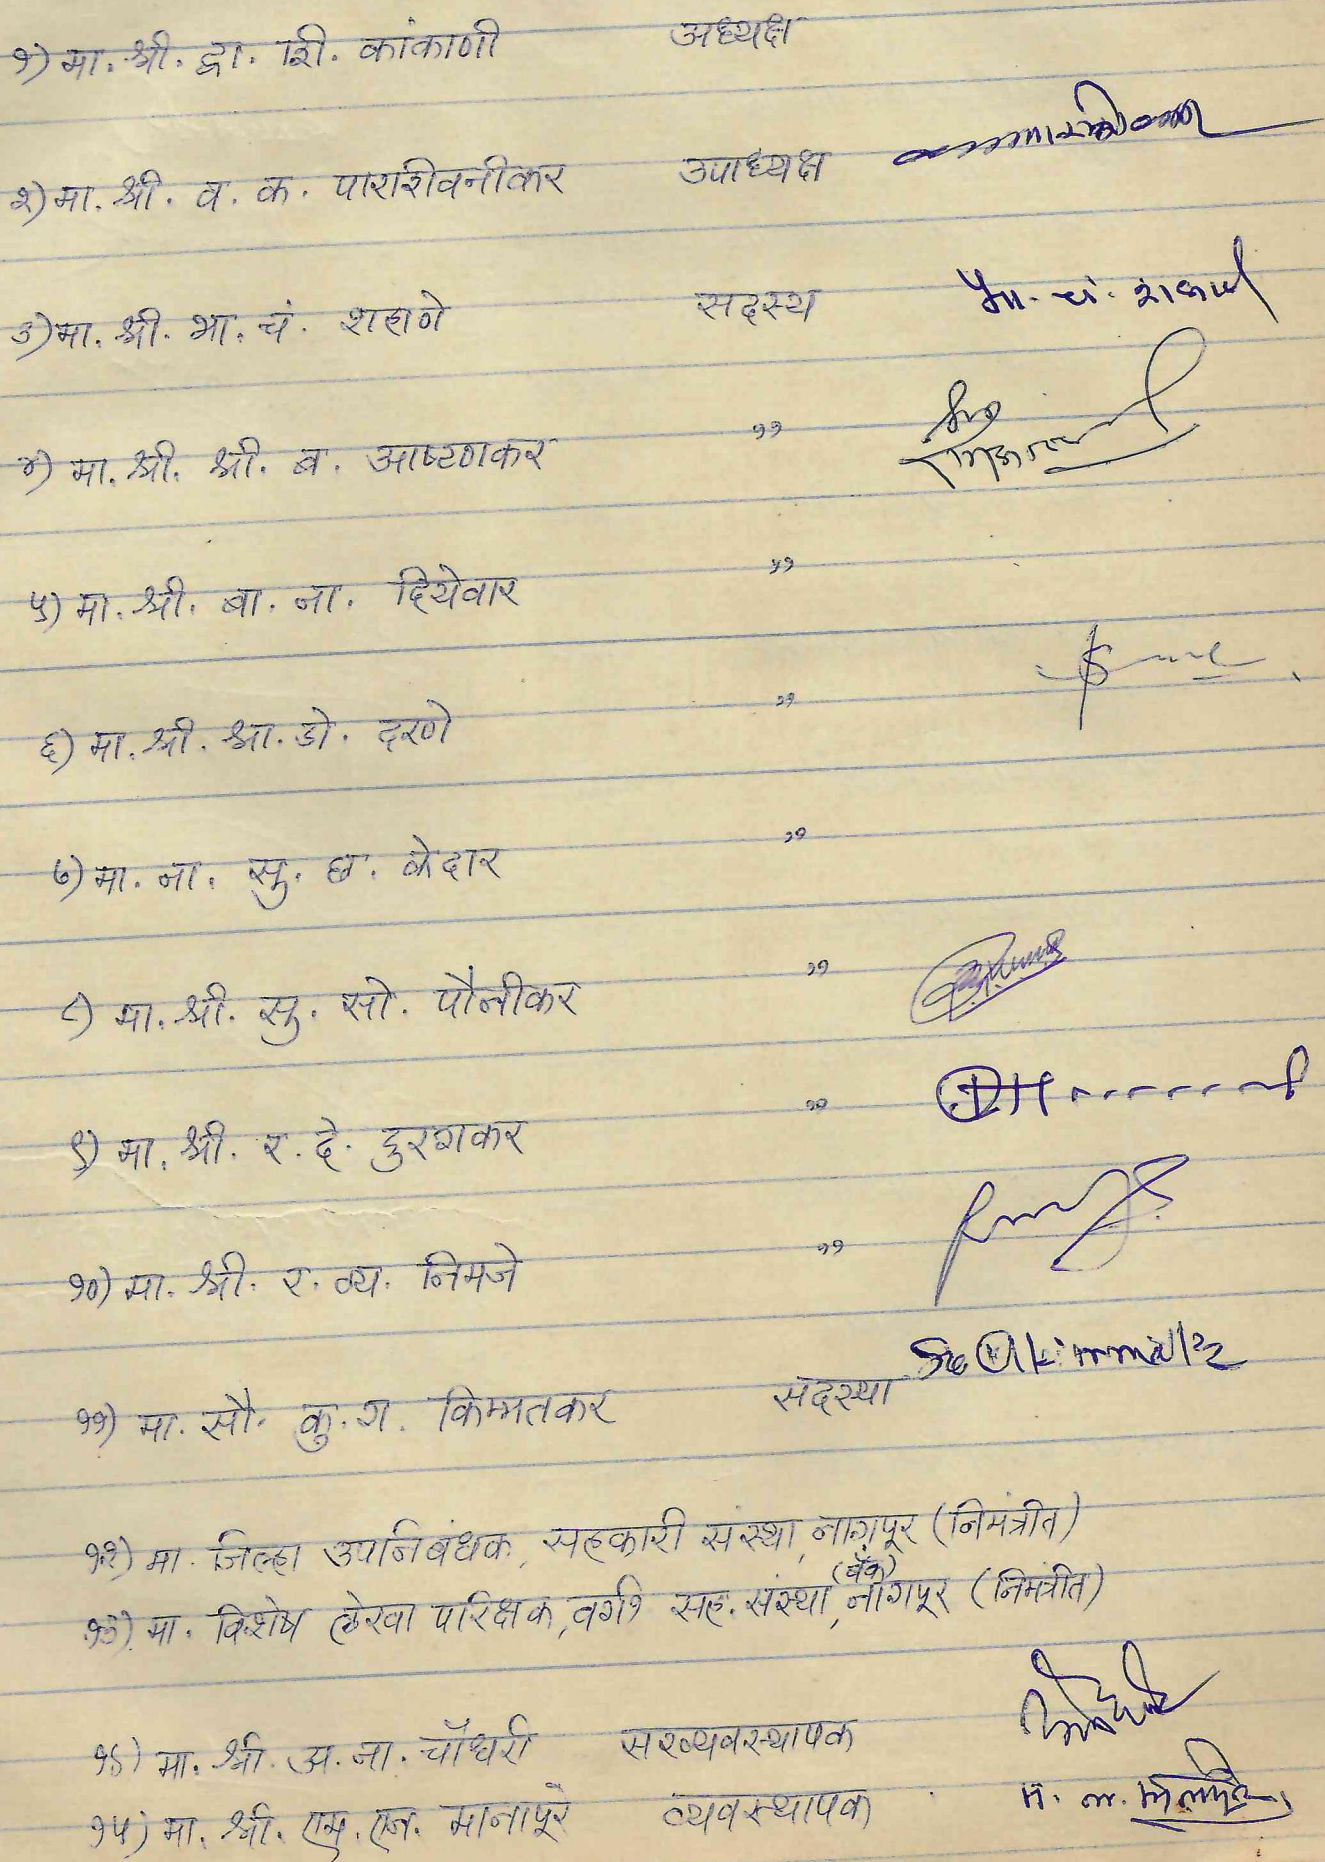 १) मा. श्री. द्वा. शि. कांकाणी अध्यक्ष
२) मा. श्री. व. क. पाराशिवनीकर उपाध्यक्ष
३) मा. श्री. भा. चं. शहाणे सदस्य भा. चं. शहाणे
४) मा. श्री. श्री. ब. आष्टणकर ,,
५) मा. श्री. बा. ना. दियेवार ,,
६) मा. श्री. श्रा. डो. दरणे ,,
७) मा. ना. सु. छ. केदार ,,
८) मा. श्री. सु. सो. पौनीकर ,,
९) मा. श्री. र. दे. दुरुगकर ,,
१०) मा. श्री. र. व्य. निमजे ,,
११) मा. सौ. कु. ग. किम्मतकर सदस्या
१२) मा. जिल्हा उपनिबंधक, सहकारी संस्था, नागपूर (निमंत्रीत)
१३) मा. विशेष लेखा परिक्षक, वर्ग१ सह. संस्था (बँक), नागपूर (निमंत्रीत)
१४) मा. श्री. अ. ना. चौधरी सरव्यवस्थापक
१५) मा. श्री. एम. एन. मानापूरे व्यवस्थापक